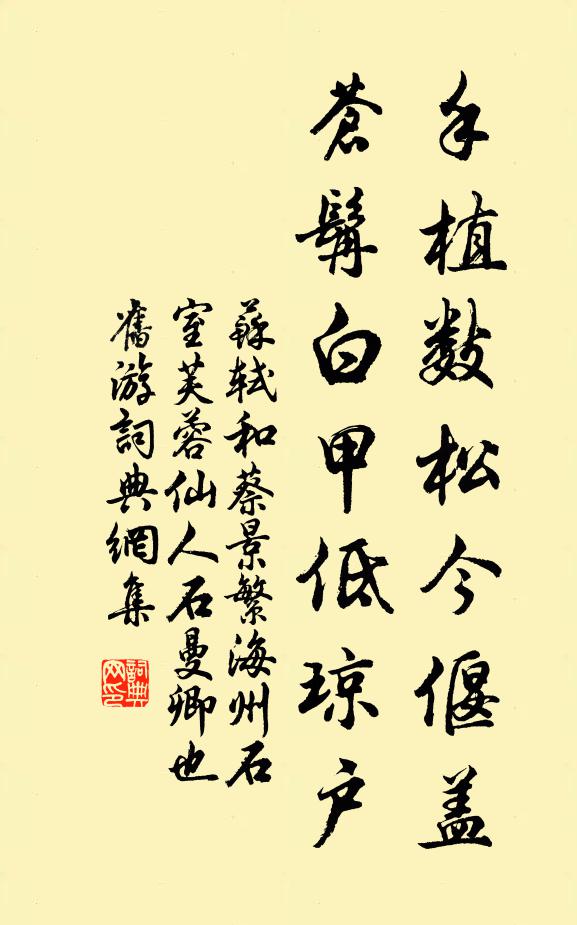 手植数松今偃盖
蒼髯白甲低琼户
蘇轼和蔡景繁海州石
室芙蓉仙人石曼卿也
舊游詞典網集
詞典网印